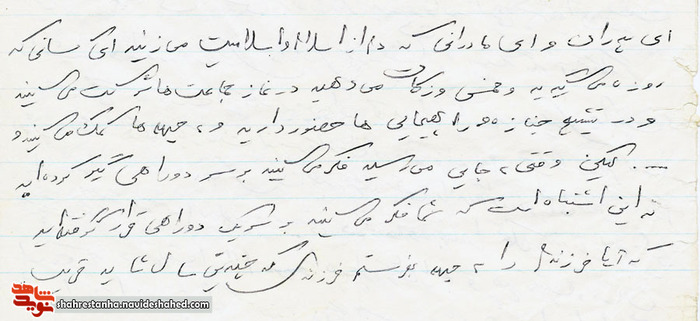 ای پدران و ای مادرانی که دم از اسلام و اسلامیت می‌زنید ای کسانی که
روزه می‌گیرید و خمس و زکات می‌دهید در نماز جماعت‌ها شرکت می‌کنید
و در تشییع جنازه و راهپیمایی‌ها حضور دارید و به جبهه‌ها کمک می‌کنید و
..... لیکن وقتی به جایی می‌رسید فکر می‌کنید بر سر دو راهی گیر کرده‌اید
نه این اشتباه است که شما فکر می‌کنید بر سر یک دو راهی قرار گرفته‌اید
که آیا فرزندم را به جبهه بفرستم فرزندی که چندین سال شاید قریب
نوید شاهد
shahrestanha.navideshahed.com